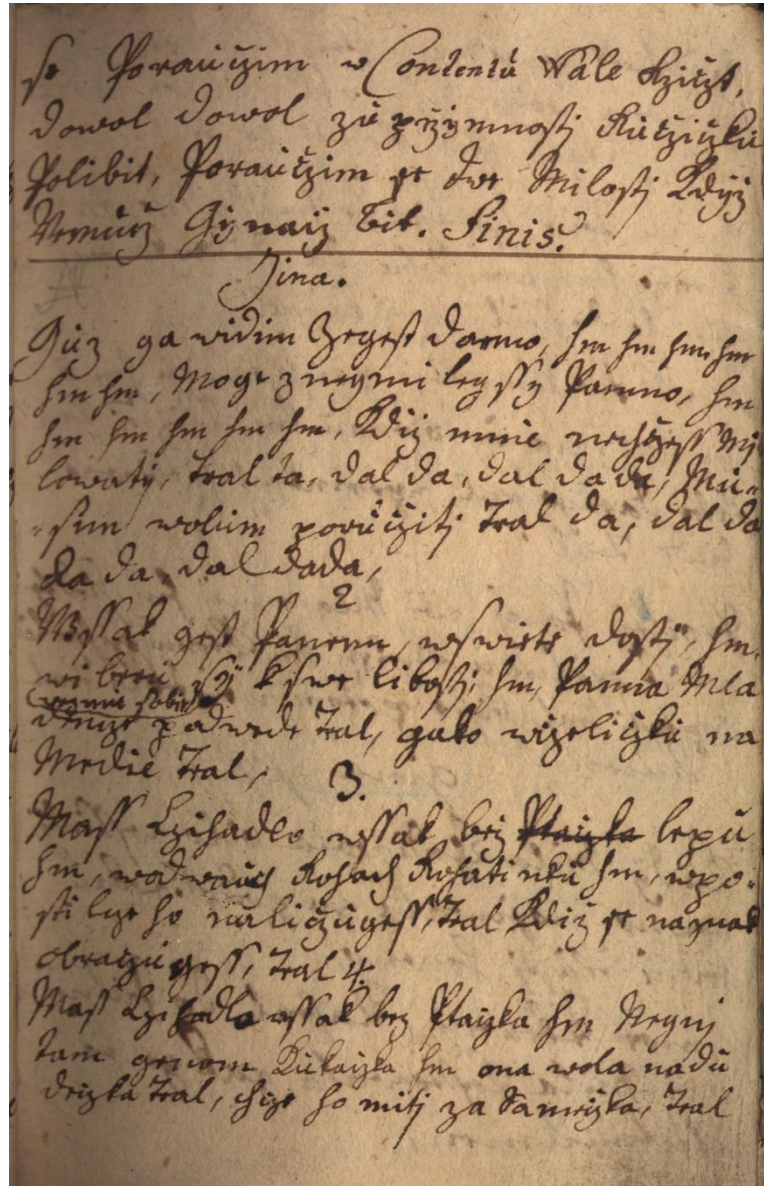 se Poraučzim w Contentu Vale Rziczt,
dowol dowol zu przijmnostj Ručziczku
Polibit, Poraučzim se dwe Milostj Kdijž
Gijnaij bit. Finis.
Jina.
Giiž ga vidim Zegest darmo, hm hm hm hm
hm hm, Moge z neijmilegssij Panno, hm
hm hm hm hm hm, Kdiž mnie nechzess Mi
lowatij, tral ta, dal da, dal da da, Mu-
-sim wolim poručzitj Tral da, dal da
da da, dal dada,
2
Wssak gest Panenu, wswiete dostj, hm,
wiberu sij kswe libostj, hm, Panna Mla
wemie sobie
dencze podwede Tral, gako wczeliczku na
Medie Tral,
3.
Mass Czihadlo wssak bez Ptaczka lepu
hm, wodwauch Rohach Rohatinku hm, wpo-
stilcze ho naliczugess, Tral Kdiž se naznak
obraczugess, Tral 4.
Mass Czihadlo wssak bez Ptaczka hm Negnj
tam genom Kukaczka hm ona wola nadu
deczka Tral, chcze ho mitj za Sameczka, Tral